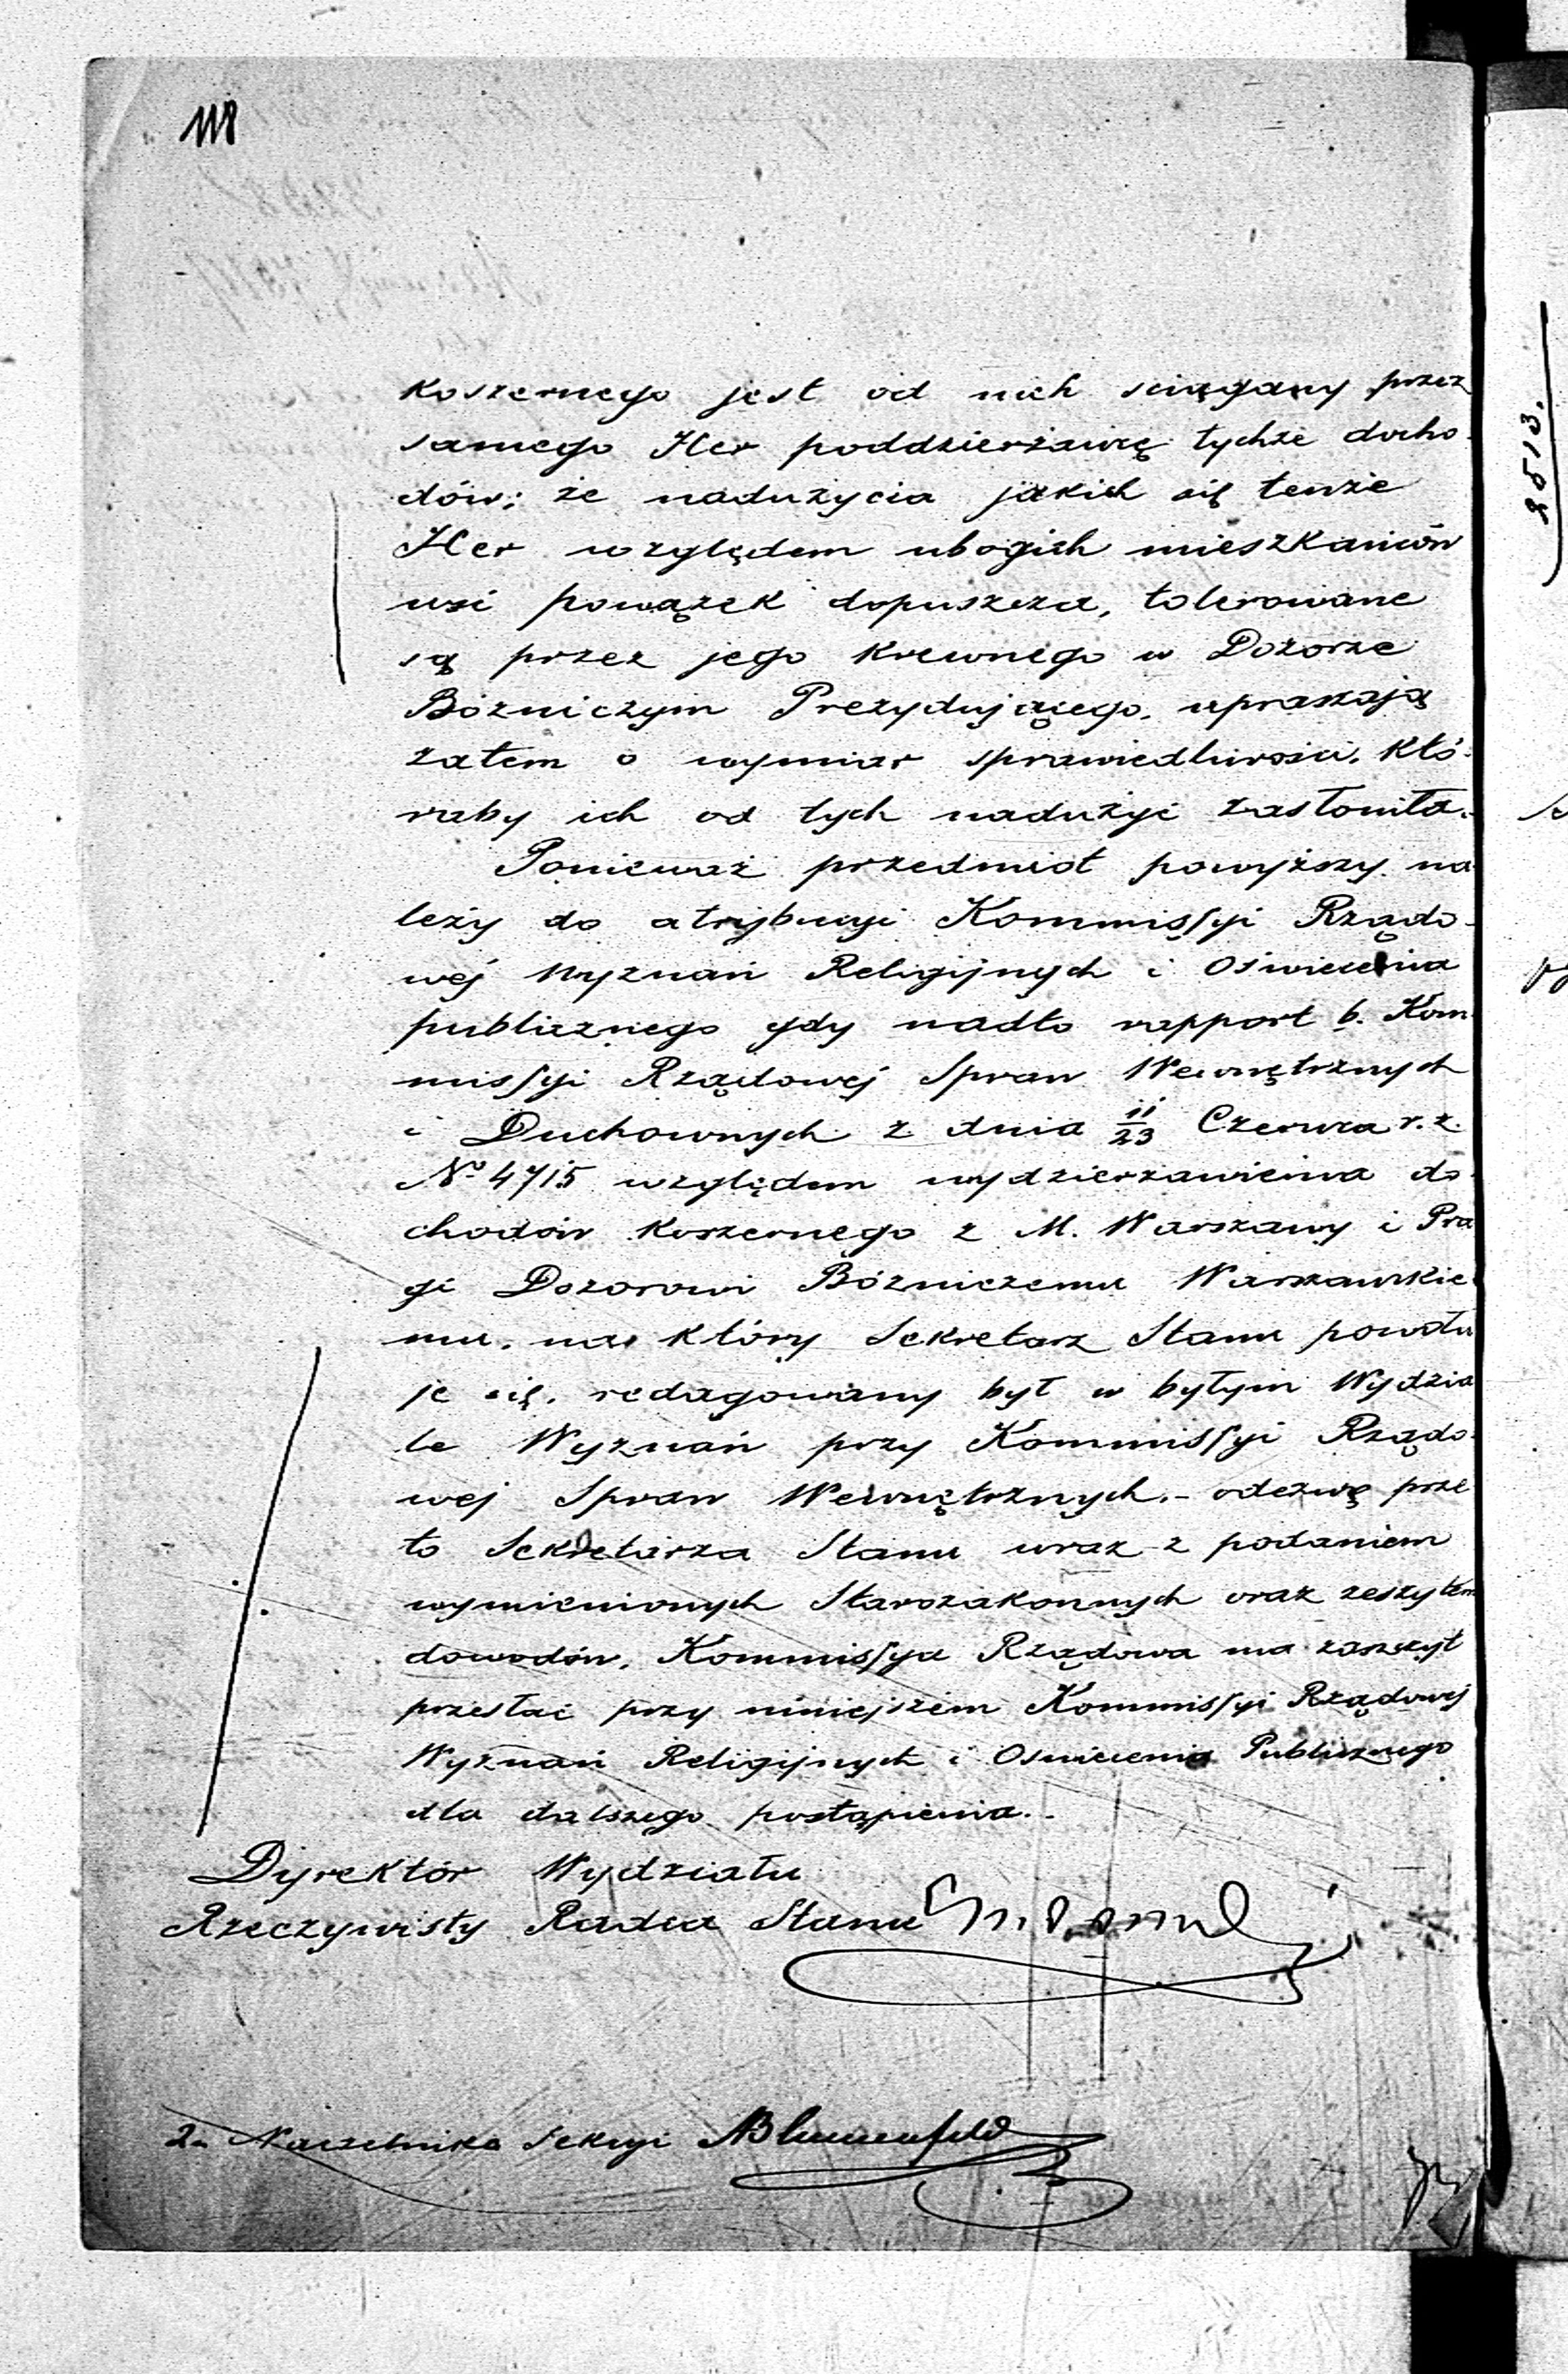 118
koszernego jest od nich sciągany przez
samego Her poddzierżawcę tychże docho-
dów; że nadużycia jakich się tenże
Her względem ubogich mieszkańców
wsi powązek dopuszcza, tolerowane
są przez jego krewnego w Dozorze
Bóżniczym Prezydującego, upraszają
zatem o wymiar sprawiedliwości, któ-
raby ich od tych nadużyć zasłoniła.
Ponieważ przedmiot powyższy na
leży do atrybucyi Kommissyi Rządo-
wéj Wyznań Religijnych i Oświecenia
publicznego gdy nadto rapport b. Kom
missyi Rządowéj Spraw Wewnętrznych
i Duchownych z dnia 11/23 Czerwca r. z.
No 4715 względem wydzierzawienia do-
chodów koszernego z M. Warszawy i Pra
gi Dozorowi Bóżniczemu Warszawskie
mu, na który Sekretarz Stanu powołu
je się, redagowany był w byłym Wydzia
le Wyznań przy Kommissyi Rządo-
wej Spraw Wewnętrznych.- odezwę prze
to Sekretarza Stanu wraz z podaniem
wymienionych Starozakonnych oraz zeszytem
dowodów, Kommissya Rządowa ma zaszczyt
przesłać przy niniejszém Kommissyi Rządowej
Wyznań Religijnych i Oświecenia Publicznego
dla dalszego postąpienia.-
Dyrektór Wydziału
Rzeczywisty Radca Stanu
Naczelnika Sekcyi Blumenfeld
2513.